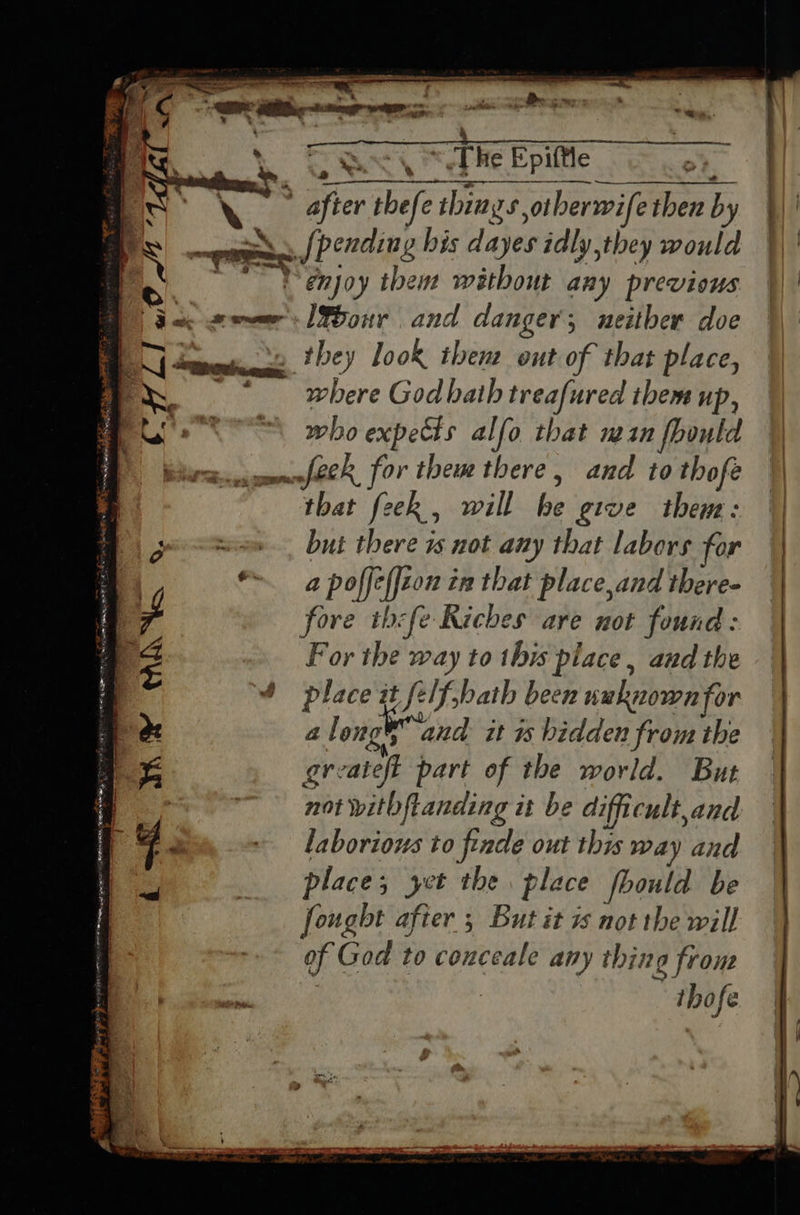 The Epiſtle
after theſe things, otherwiſe then by
ſpending his dayes idly, they would
enjoy them without any previous
labour and danger; neither doe
they look them out of that place,
where God hath treaſured them up,
who expects alſo that man ſhould
ſeek for them there, and to thoſe
that ſeek, will he give them:
but there is not any that labors for
a poſſeſſion in that place, and there-
fore theſe Riches are not found:
For the way to this place, and the
place it ſelf, hath been unknown for
a long and it is hidden from the
greateſt part of the world. But
notwithſtanding it be difficult, and
laborious to finde out this way and
place; yet the place ſhould be
ſought after; But it is not the will
of God to conceale any thing from
thoſe